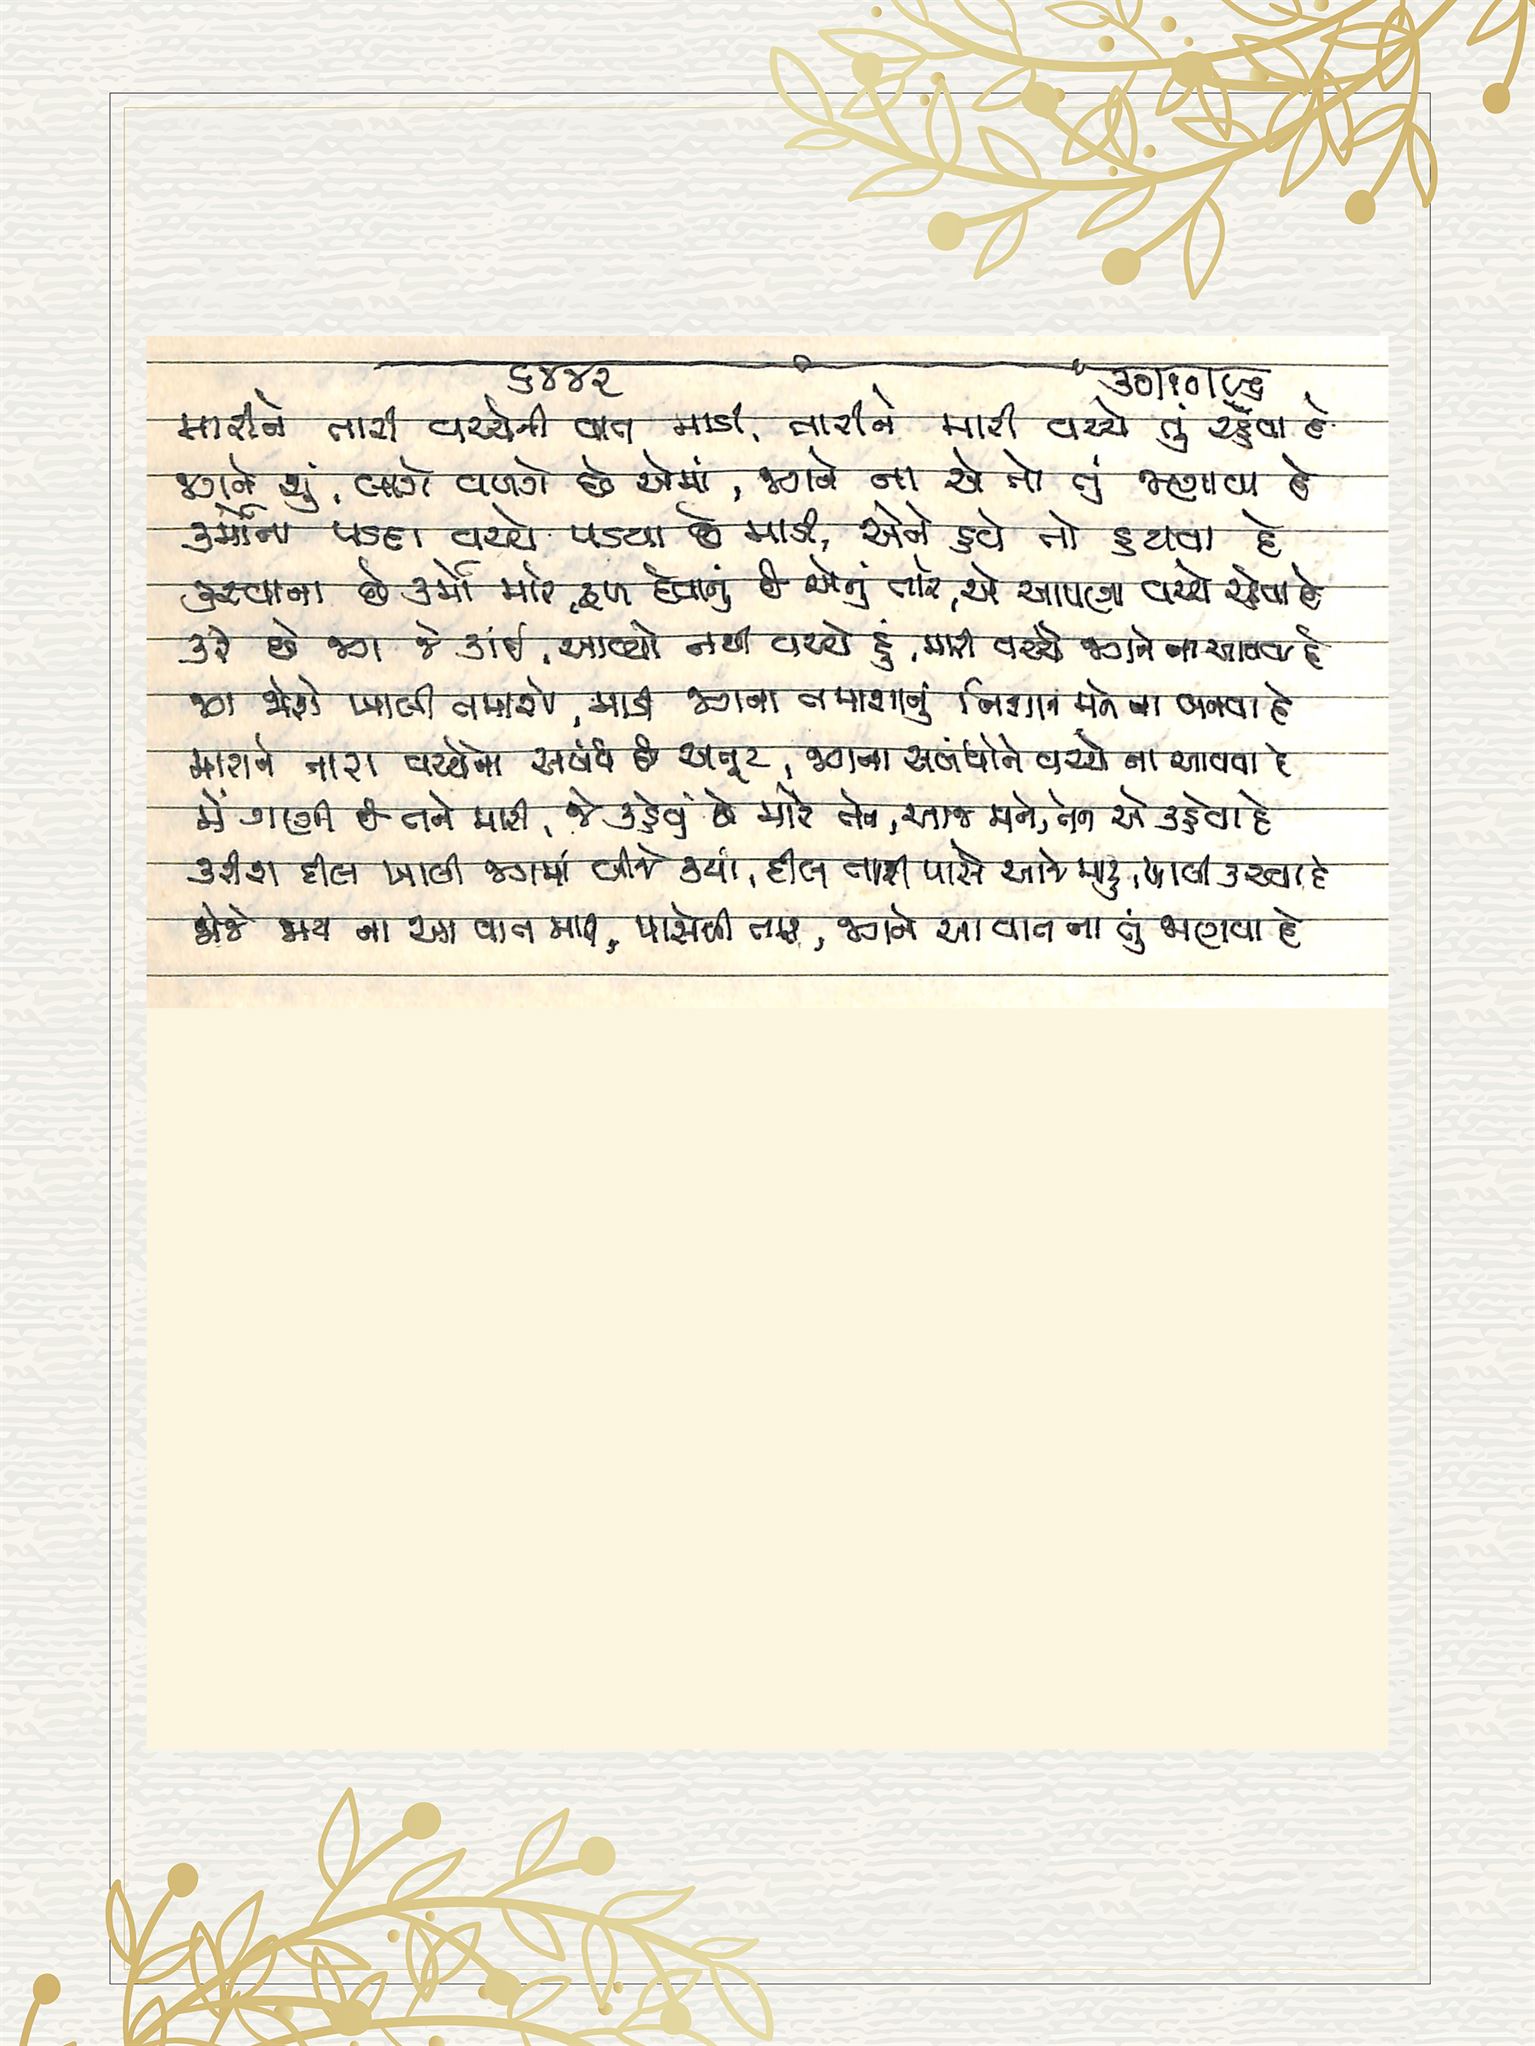 ૬૪૪૨ ૩૦|૧૦|૯૬
મારીને તારી વચ્ચેની વાત માડી, તારીને મારી વચ્ચે તું રહેવા દે
જગને શું, લાગે વળગે છે એમાં, જગને ના એ તો તું જાણવા દે
કર્મોના પડદા વચ્ચે પડયા છે માડી, એને હવે તો હટાવવા દે
કરવાના છે કર્મો મારે, ફળ દેવાનું છે એનું તારે, એ આપણા વચ્ચે રહેવા દે
કરે છે જગ જે કાંઈ, આવ્યો નથી વચ્ચે હું, મારી વચ્ચે જગને ના આવવા દે
જગ જોશે ખાલી તમાશો, માડી જગના તમાશાનું નિશાન મને ના બનવા દે
મારાને તારા વચ્ચેનો સબંધ છે અતૂટ, જગના સબંધોને વચ્ચે ના આવવા દે
મેં ગણી છે તને મારી, જે કહેવું છે મારે તને, આજ મને, તને એ કહેવા દે
કરીશ દીલ ખાલી જગમાં બીજે કયાં, દીલ તારી પાસે આજે મારું, ખાલી કરવા દે
જોજે જાય ના આ વાત મારી, પાસેથી તારી, જગને આ વાત ના તું જાણવા દે